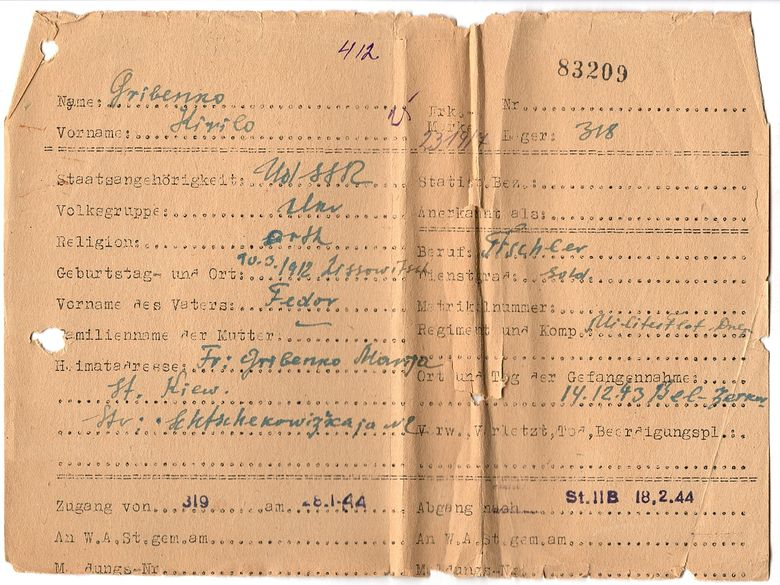 412
83209
Name: Gribenko
Vorname: Kirilo
Erk.-
Mark. Nr
231917 Lager: 318
Staatsangehörigkeit: UdSSR
Statist.Bez.:
Volksgruppe: Ukr
Anerkannt als:
Religion: orth
Beruf: Tischler
Geburtstag- und Ort: 10.3.1912
Dienstgrad: Sold.
Vorname des Vaters: Fedor
Matrikelnummer:
Familienname der Mutter: —
Regiment und Komp.
Heimatadresse: Fr: Gribenko Marija
St. Kiew.
Str:
Ort und Tag der Gefangennahme:
14.12.43
Verw., Verletzt, Tod, Beerdigungspl.:
Zugang von 319 am 28.1.44
Abgang nach St.IIB 18.2.44
An W.A.St.gem.am
An W.A.St.gem.am
Meldungs-Nr
Meldungs-Nr